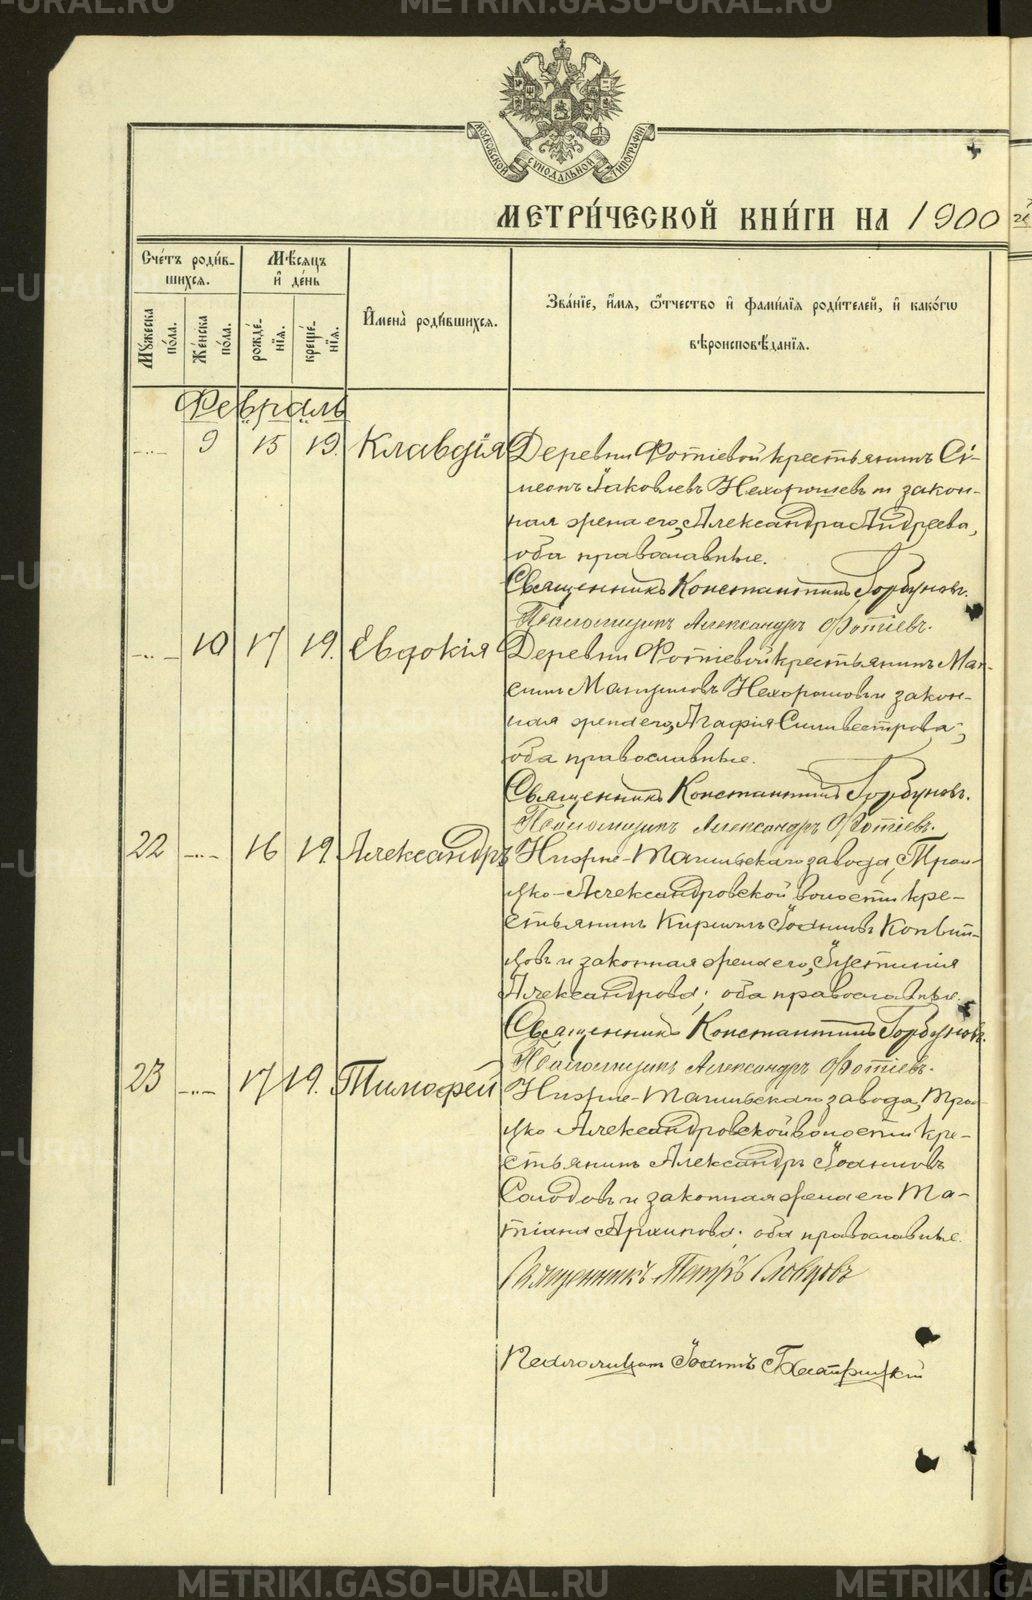 METRIKI.GASO-URAL.RU
МОСКОВСКОЙ СѴНОДАЛЬНОЙ ТИПОГРАФІИ
МЕТРИ́ЧЕСКОЙ КНИ́ГИ НА 1900
Сче́тъ роди́в-
шихсѧ.
Мѣ́сѧцъ
и҆ де́нь
Мꙋ́жеска
по́ла.
Же́нска
по́ла.
рожде́-
нїѧ.
креще́-
нїѧ.
И҆мена̀ роди́вшихсѧ.
Зва́нїе, и҆́мѧ, ѻ҆́тчество и҆ фами́лїѧ роди́телей, и҆ како́гѡ
вѣроисповѣ́данїѧ.
Февраль
9 15 19. Клавдія Деревни Фотіевой крестьянинъ Сі-
меонъ Іаковлевъ Нехорошевъ и закон-
ная жена его, Александра Андреева,
оба православные.
Священникъ Константинъ Горбуновъ.
Псаломщикъ Александръ Фотіевъ.
10 17 19. Евдокія Деревни Фотіевой крестьянинъ Мак-
симъ Нехорошевъ и закон-
ная жена его, Агафія Сильвестрова,
оба православные.
Священникъ Константинъ Горбуновъ.
Псаломщикъ Александръ Фотіевъ.
22 16 19. Александръ Нижне-Тагильскаго завода, Трои-
цко-Александровской волости кре-
стьянинъ Кириллъ Іоанновъ
и законная жена его, Іустинія
Александрова; оба православные.
Священникъ Константинъ Горбуновъ.
Псаломщикъ Александръ Фотіевъ.
23 17 19. Тимофей Нижне-Тагильскаго завода, Трои-
цко Александровской волости кре-
стьянинъ Александръ Іоанновъ
Солодовъ и законная жена его Та-
тіана Архипова; оба православные.
Священникъ Петръ Словцовъ
Псаломщикъ Іоаннъ
METRIKI.GASO-URAL.RU